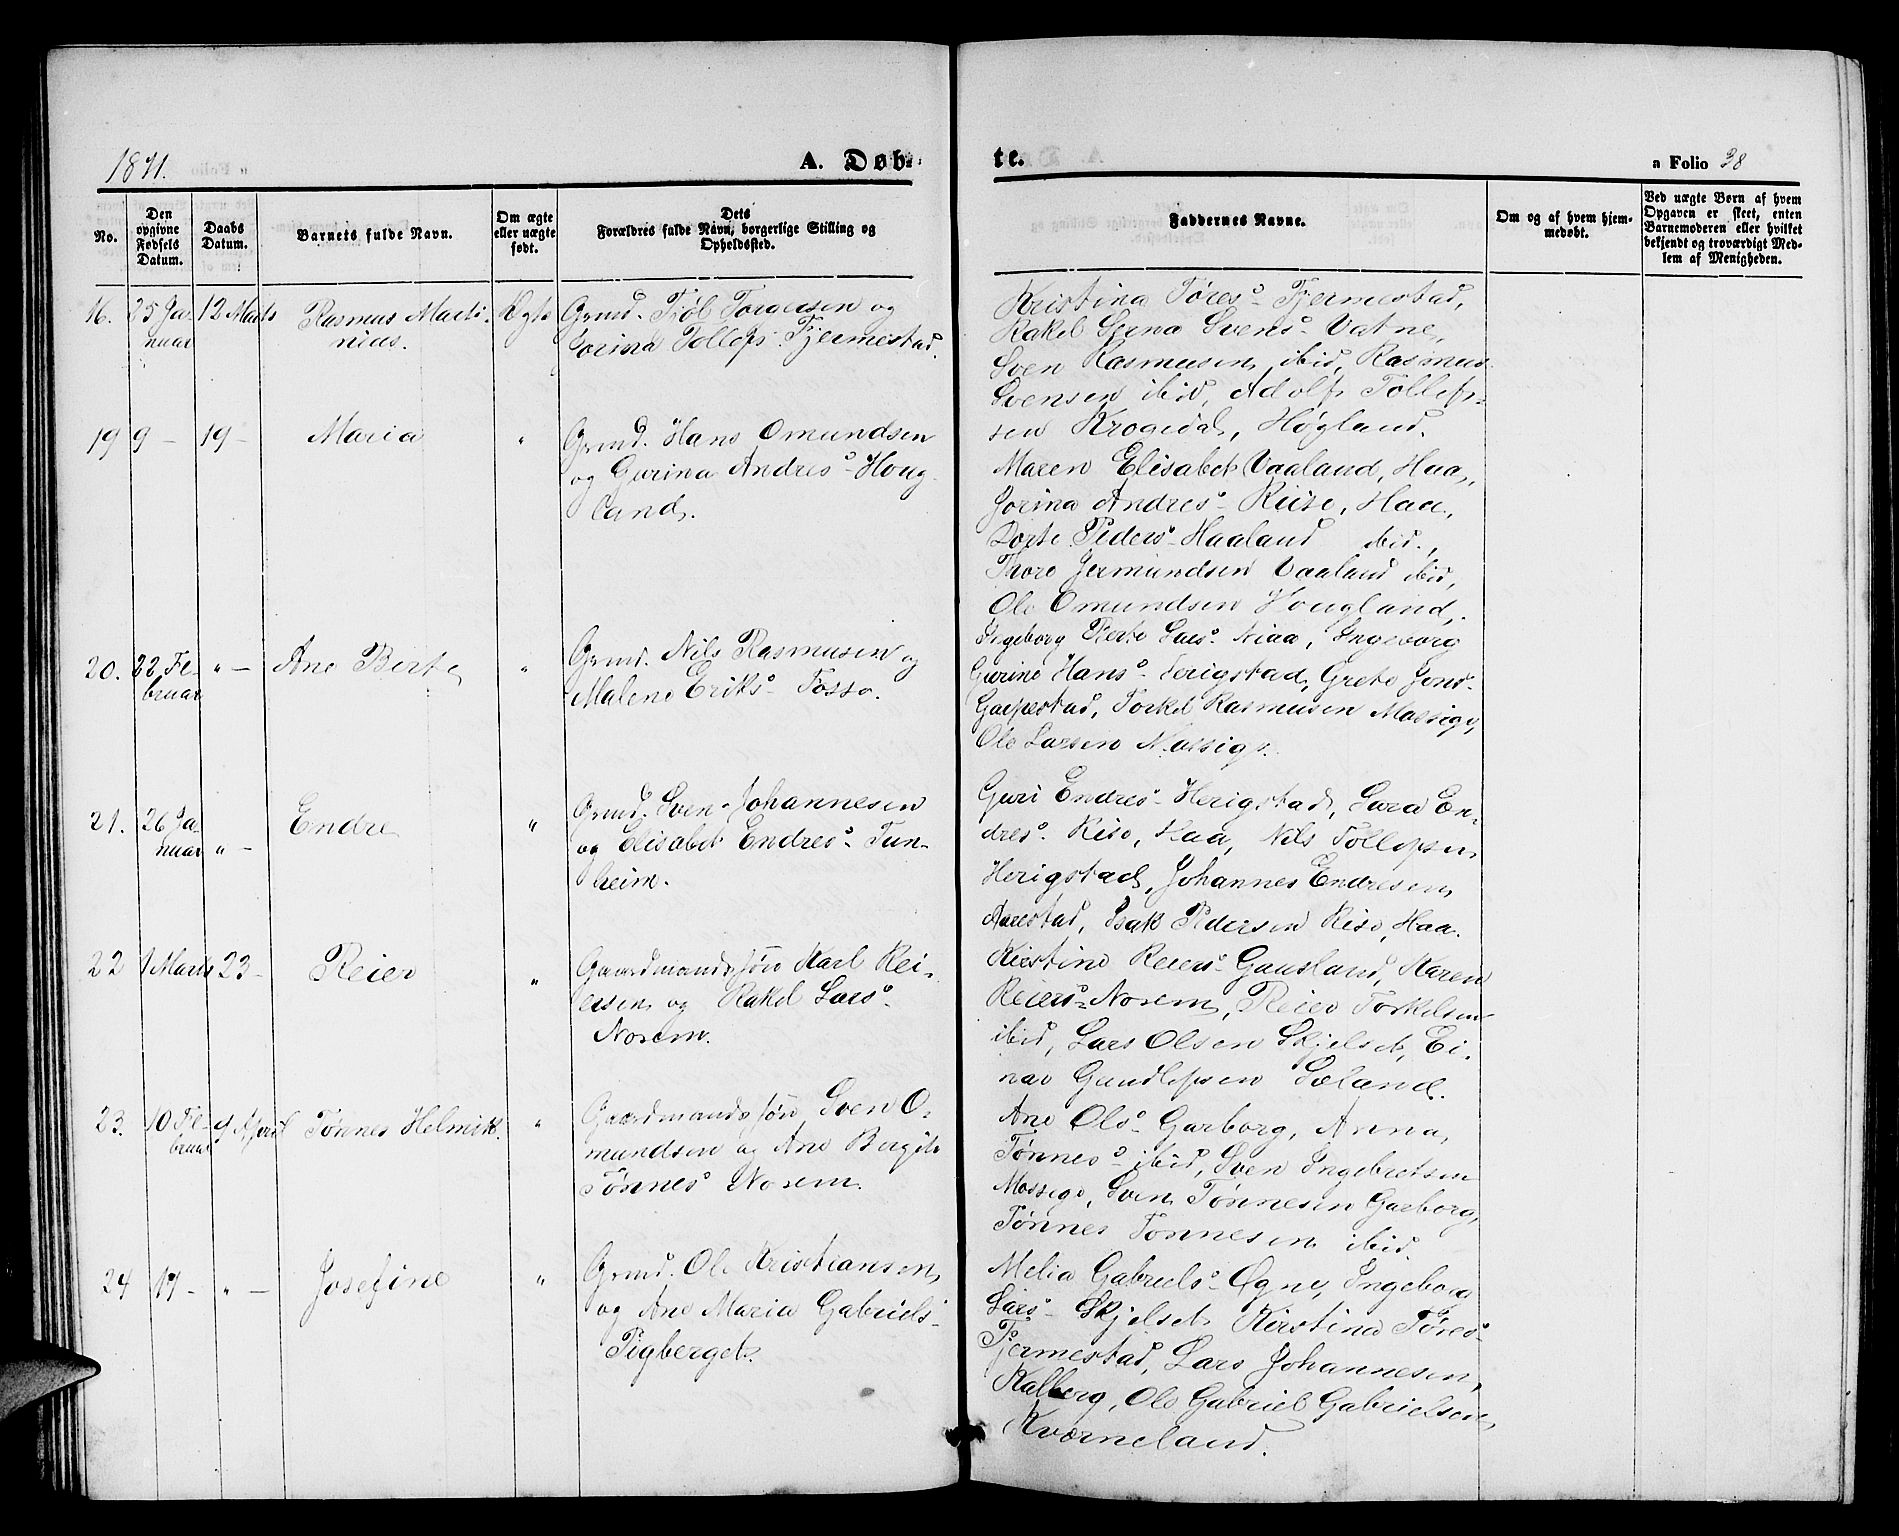 1871.
A. Døb-
te.
a Folio 38
No.
Den opgivne Fødsels Datum.
Daabs Datum.
Barnets fulde Navn.
Om ægte eller uægte født.
Dets Forældres fulde Navn, borgerlige Stilling og Opholdssted.
Faddernes Navne.
Om og af hvem hjem-
medøbt.
Ved uægte Børn af hvem
Opgaven er skeet, enten
Barnemoderen eller hvilket
bekjendt og troværdigt Med-
lem af Menigheden.
16. 25 Ja- 12 Marts Rasmus Marti- Ægte Grmd. Tjøl Torgersen og
nuar nius. Jorina Tollefs- Fjermestad.
Kristina Tøres- Fjermestad,
Rakel Serina Svens- Vatne,
Sven Rasmusen ibid, Rasmus
Svensen ibid, Adolf Tollef-
sen Krogedal, Høgland.
19 9 - 19 - Maria " Grmd. Hans Omundsen
og Gurina Andres- Houg-
land.
Maren Elisabet Vaaland, Haa,
Jorina Andres- Riise, Haa,
Dorte Peders- Haaland ibid.,
Thore Jermundsen Vaaland ibid,
Ole Omundsen Hougland,
20. 22 Fe- " - Ane Berte " Grmd. Nils Rasmusen og
bruar Malene Eriks- Fosse.
Ingeborg Berte Lars- Niaa, Ingeborg
Gurine Hans- Herigstad, Grete Jons-
Garpestad, Torkel Rasmusen Massige,
Ole Larsen Massige.
21. 26 Ja- " - Endre " Grmd. Sven Johannesen
nuar og Elisabet Endres- Tun-
heim.
Guri Endres- Herigstad, Sara En-
dres- Rise, Haa, Nils Tollefsen
Herigstad, Johannes Endresen
Aarestad, Isak Pedersen Rise, Haa.
22 1 Marts 23 - Reier " Gaardmandssøn Karl Rei-
ersen og Rakel Lars-
Norem.
Kirstine Reiers- Gausland, Karen
Reiers- Norem, Reier Torkelsen
ibid, Lars Olsen Skjelset, Ei-
nar Gundlefsen Sæland.
23. 10 Fe- 9 April Tønnes Helmik. " Gaardmandssøn Sven O-
bruar mundsen og Ane Bergite
Tønnes- Norem.
Ane Ols- Garborg, Anna
Tønnes- ibid, Sven Ingebretsen
Mossige, Sven Tønnesen Garborg,
Tønnes Tønnesen ibid.
24 17 - " - Josefine " Grmd. Ole Kristiansen
og Ane Maria Gabriels-
Tigberget.
Melia Gabriels- Ogne, Ingeborg
Lars- Skjelset, Kirstina Tøres-
Fjermestad, Lars Johannesen
Kalberg, Ole Gabriel Gabrielsen
Kværneland.